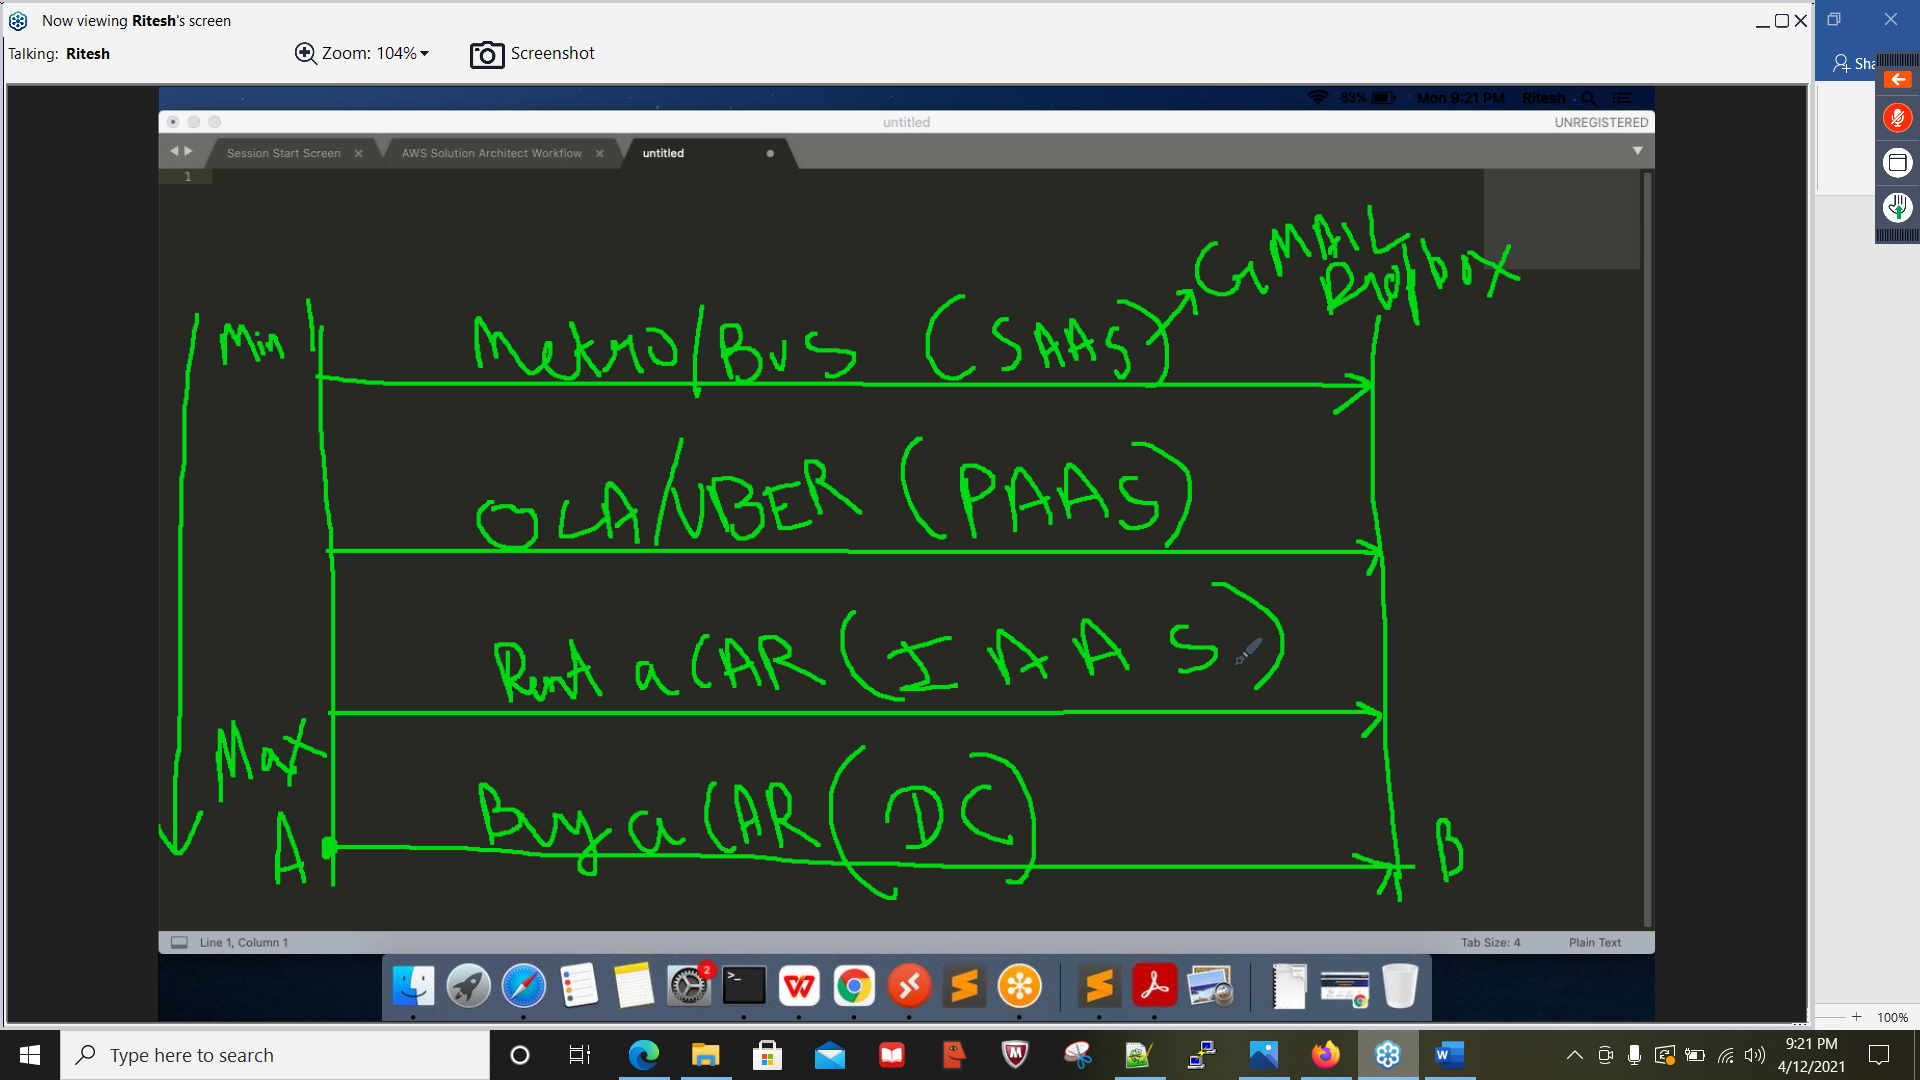 Now viewing Ritesh's screen
Talking: Ritesh
Zoom: 104%
Screenshot
Sha
83% Mon 9:21 PM Ritesh
untitled
UNREGISTERED
Session Start Screen
AWS Solution Architect Workflow
untitled
1
GMAIL
Dropbox
Min
Metro/Bus (SAAS)
OLA/UBER (PAAS)
Rent a CAR (IAAS)
Max
Buy a CAR (DC)
A
B
Line 1, Column 1
Tab Size: 4
Plain Text
2
100%
Type here to search
9:21 PM
4/12/2021